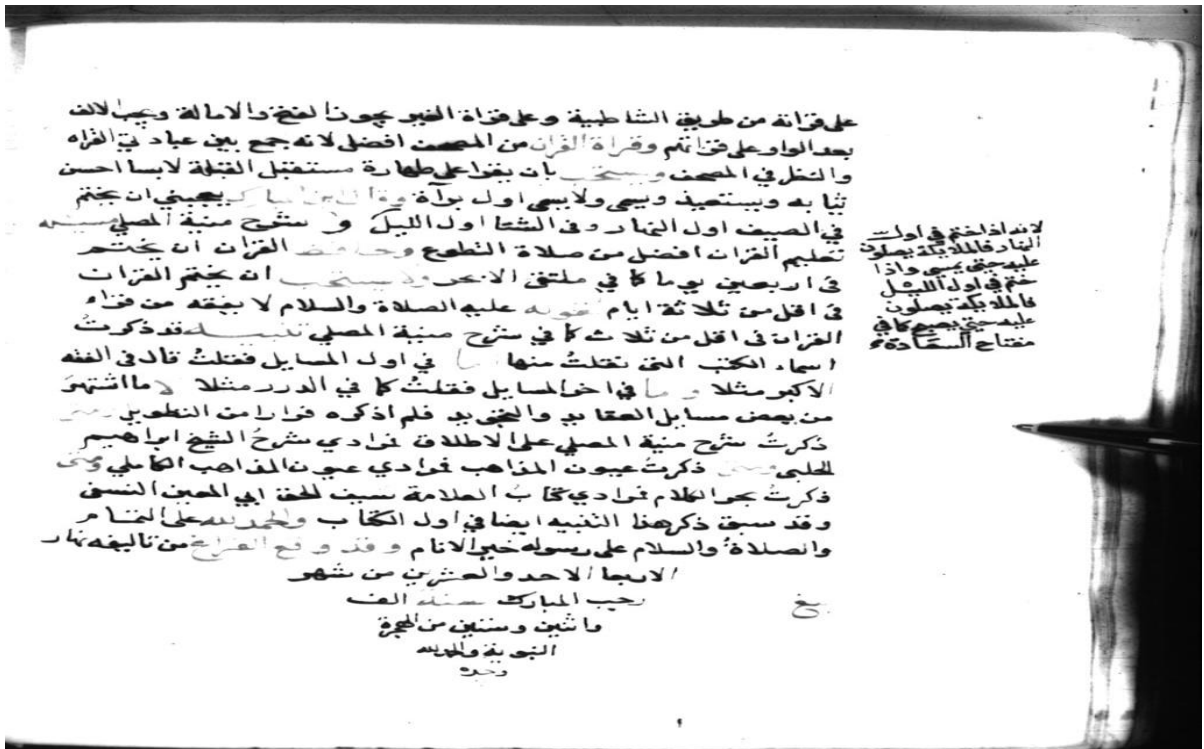 على قراته من طريق الشاطبية وعلى قراة الغير يجوز الفتح والامالة ويجب الالف
بعد الواو على قراتهم وقراة القران من المصحف افضل لانه جمع بين عبادتي القراه
والنظر في المصحف ويستحب بان يقرا على طهارة مستقبل القبلة لابسا احسن
ثيابه ويستعيذ ويسمى ولا يسمى اول برآة وقال ابن مبارك يعجبني ان يختم
في الصيف اول النهار وفي الشتا اول الليل شرح منية المصلي
تعليم القران افضل من صلاة التطوع القران ان يختم
في اربعين يوما كما في ملتقى الابحر ولا يستحب ان يختم القران
في اقل من ثلاثة ايام لقوله عليه الصلاة والسلام لا يفقه من قراء
القران في اقل من ثلاث كما في شرح منية المصلي تنبيه قد ذكرت
اسماء الكتب التي نقلت منها في اول المسايل فقلت قال في الفقه
الاكبر مثلا في اخر المسايل فقلت كما في الدرر مثلا ما اشتهر
من بعض مسايل العقايد والتجويد فلم اذكره فرارا من التطويل ومتى
ذكرت شرح منية المصلي على الاطلاق فمرادي شرح الشيخ ابراهيم
الحلبي ومتى ذكرت عيون المذاهب فمرادي عيون المذاهب الكاملي ومتى
ذكرت بحر الكلام فمرادي كتاب العلامة سيف الحق ابي المعين النسفى
وقد سبق ذكر هذا التنبيه ايضا في اول الكتاب والحمد لله على التمام
والصلاة والسلام على رسوله خير الانام وقد وقع الفراغ من تاليفه نهار
الاربعا الاحد والعشرين من شهر
رجب المبارك سنة الف
واثنين وستين من الهجرة
النبوية والحمد لله
وحده
لانه اذا ختم في اول
النهار فالملايكة يصلون
عليه حتى يمسى واذا
ختم في اول الليل
فالملايكة يصلون
عليه حتى يصبح كما في
مفتاح السعادة